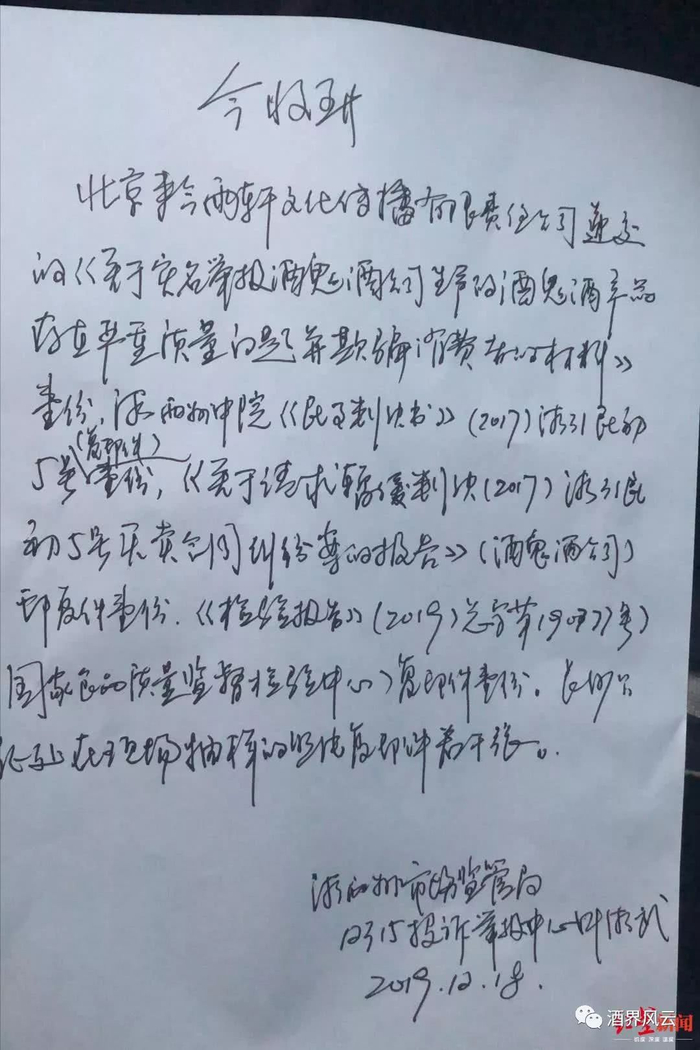 今收到
北京来今雨轩文化传播有限责任公司递交
的《关于实名举报酒鬼酒公司生产的酒鬼酒产品
存在严重质量问题并欺骗消费者的材料》
壹份，湘西州中院《民事判决书》(2017)湘31民初
5号(复印件)壹份，《关于请求暂缓判决(2017)湘31民
初5号买卖合同纠纷案的报告》(酒鬼酒公司)
印复件壹份.《检验报告》(2019)总字第19077号)
国家食品质量监督检验中心)复印件壹份。长沙公
证处在现场抽样的照片复印件若干张。
湘西州市场监管局
12315投诉举报中心
2019.12.18.
酒界风云
红星新闻